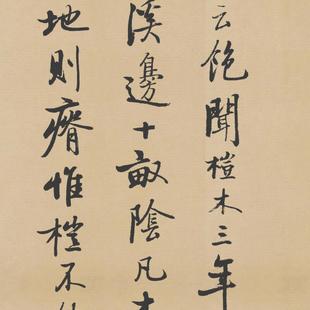 云飽聞榿木三年
溪邊十畝陰凡木
地則瘠惟榿不